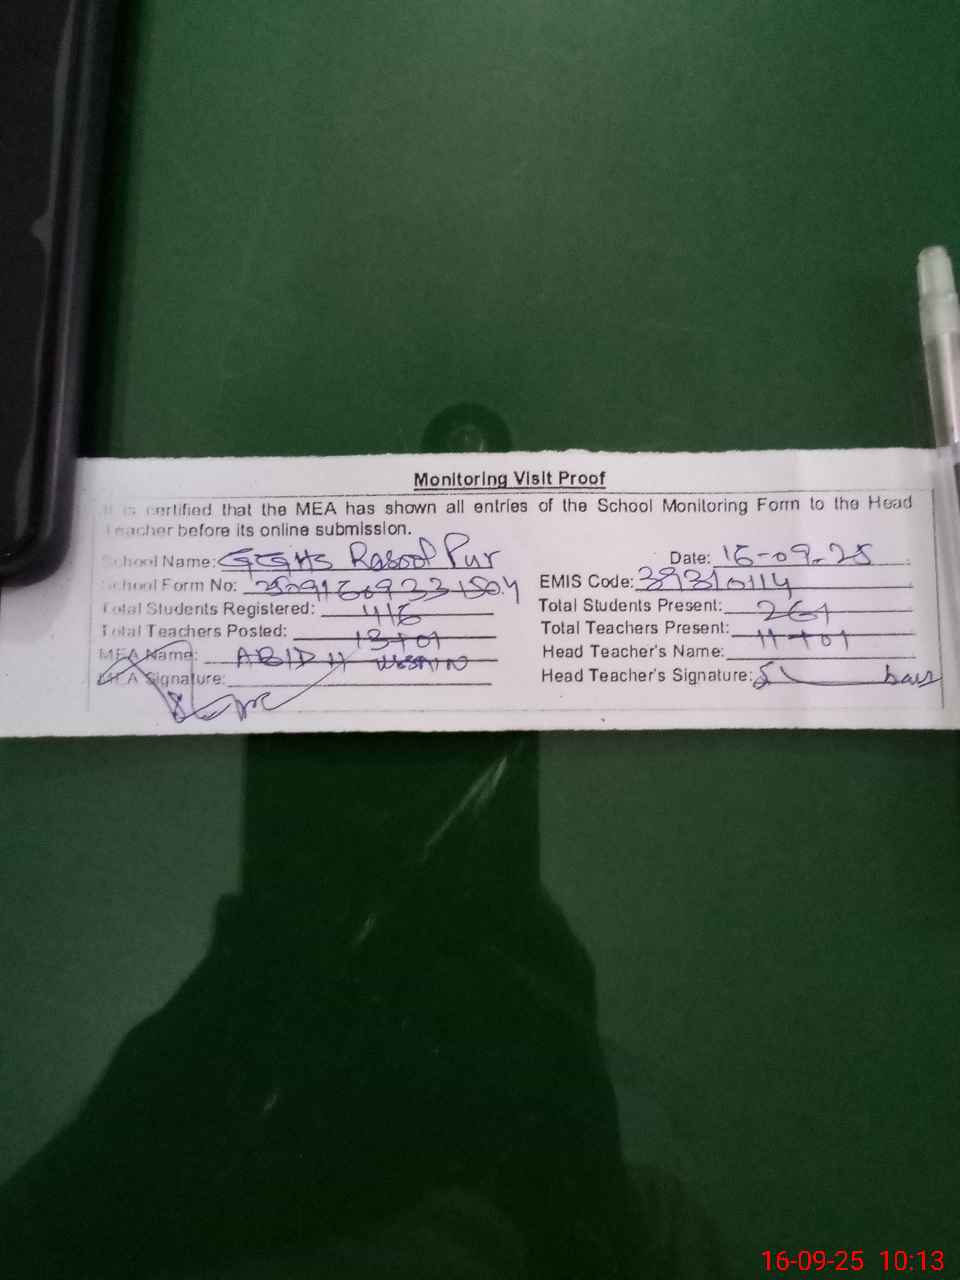 Monitoring Visit Proof
It is certified that the MEA has shown all entries of the School Monitoring Form to the Head
Teacher before its online submission.
School Name: GGHS Rasool Pur Date: 16-09-25
School Form No: EMIS Code: 39310114
Total Students Registered: 416 Total Students Present: 261
Total Teachers Posted: 13+01 Total Teachers Present: 11+01
MEA Name: ABID HUSSAIN Head Teacher's Name:
MEA Signature: Head Teacher's Signature:
16-09-25 10:13